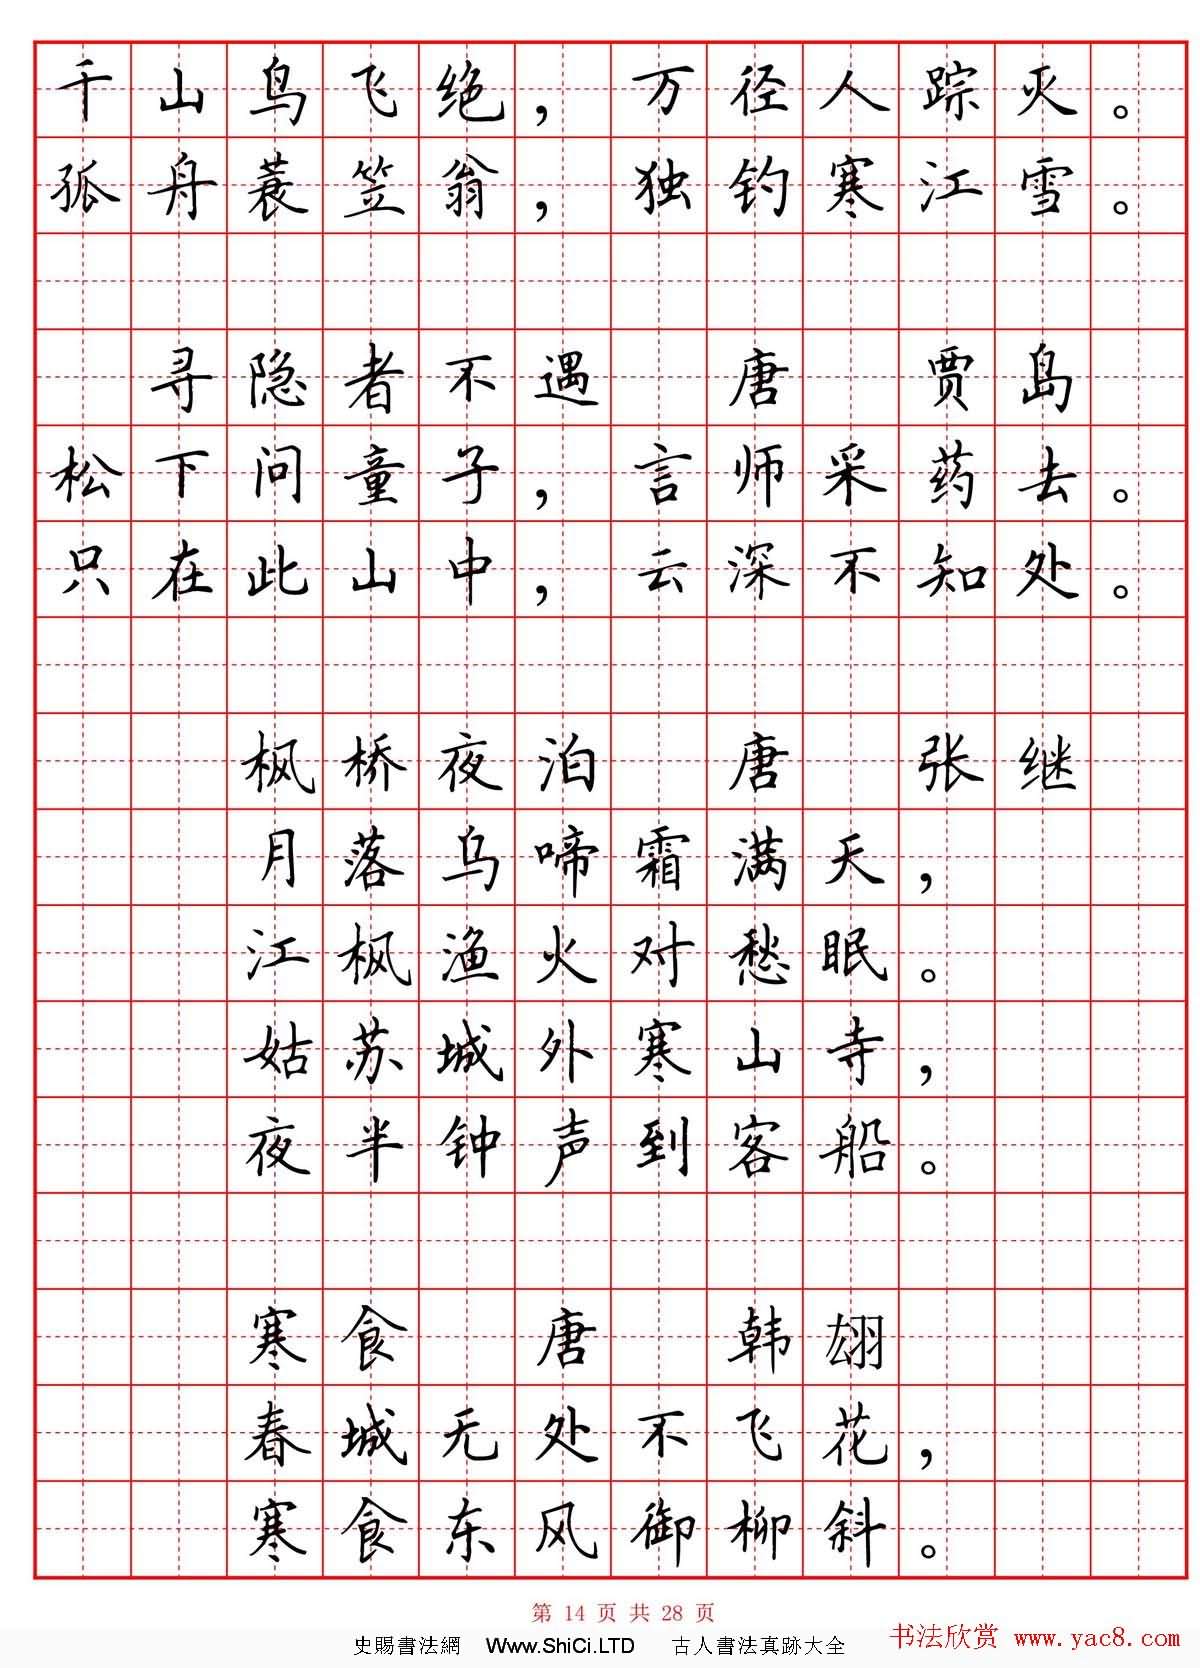 千山鸟飞绝，万径人踪灭。
孤舟蓑笠翁，独钓寒江雪。
寻隐者不遇 唐 贾岛
松下问童子，言师采药去。
只在此山中，云深不知处。
枫桥夜泊 唐 张继
月落乌啼霜满天，
江枫渔火对愁眠。
姑苏城外寒山寺，
夜半钟声到客船。
寒食 唐 韩翃
春城无处不飞花，
寒食东风御柳斜。
第 14 页 共 28 页
史賜書法網 Www.ShiCi.LTD 古人書法真跡大全
书法欣赏 www.yac8.com